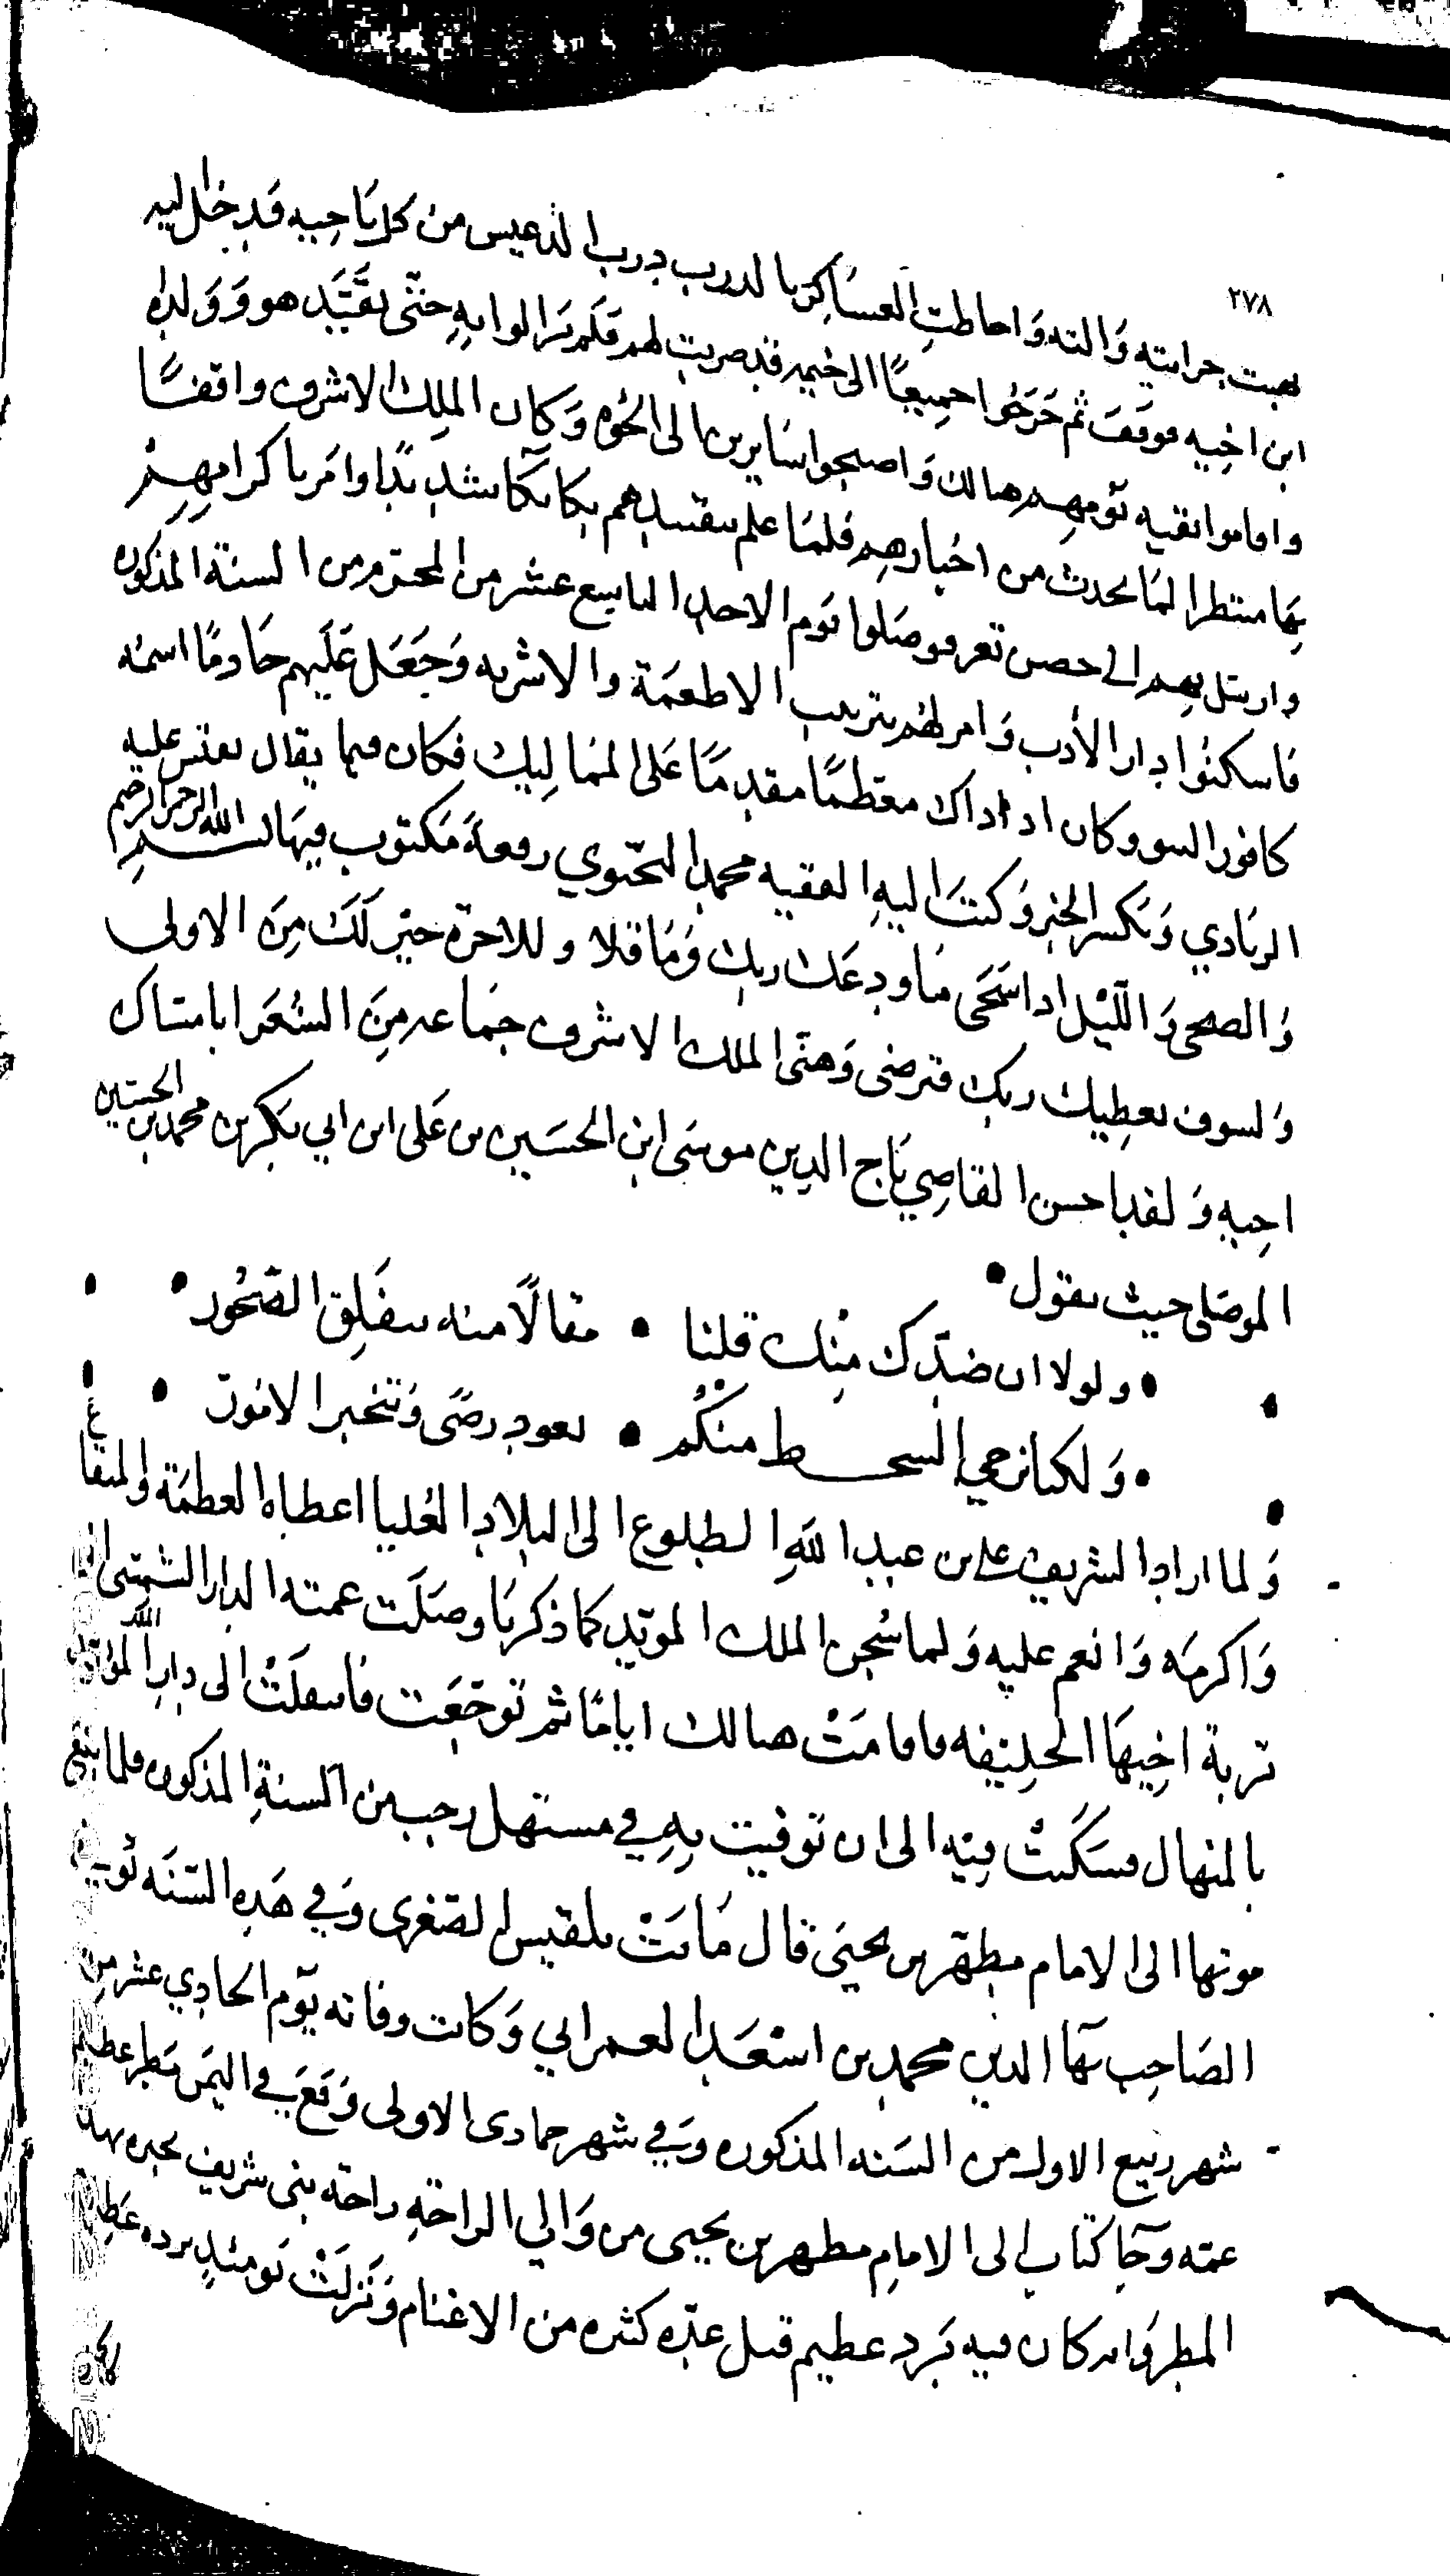 ٢٧٨
نهبت جرايته والته واحاطت العساكر بالدرب درب الدعيس من كل ناحيه فدخل اليه
ابن اخيه فوقف ثم خرجوا جميعا الى خيمه قد ضربت لهم فلم يزالوا به حتى تقيد هو وولداه
واقاموا بقيه يومهم هنالك واصبحوا سايرين الى الجوه وكان الملك الاشرف واقفا
بها منتظرا لما يحدث من اخبارهم فلما علم بتقييدهم بكا بكاً شديداً وامر باكرامهم
وارسل بهم الى حصن تعز فوصلوا يوم الاحد التاسع عشر من المحرم من السنة المذكوره
فاسكنوا دار الأدب وامر لهم بترتيب الاطعمة والاشربه وجعل عليهم خادماً اسمه
كافور وكان اذ ذاك معظماً مقدماً على المماليك فكان فيما يقال يفتش عليه
الزبادي ويكسر الخبز وكتب اليه الفقيه محمد النحوي رقعة مكتوب فيها بسم الله الرحمن الرحيم
والضحى والليل اذا سجى ما ودعك ربك وما قلا وللاخرة خير لك من الاولى
ولسوف يعطيك ربك فترضى وهنى الملك الاشرف جماعه من الشعرا بامساك
اخيه ولقد احسن القاضي تاج الدين موسى ابن الحسين بن على ابن ابي بكر بن محمد بن الحسين
الموصلي حيث يقول
ولولا ان ضدك منك قلنا • مقالاً منه ينفلق الصخور
ولكنا نرجي السخط منكم • يعود رضى وتنجبر الامور
ولما اراد الشريف على بن عبد الله الطلوع الى البلاد العليا اعطاه العطمة والمتقاع
واكرمه وانعم عليه ولما سجن الملك المويد كما ذكرنا وصلت عمته الدار الشمسى
تربة اخيها الخليفه فاقامت هنالك اياماً ثم توجعت فانتقلت الى دار المويد
بالمنهال فسكنت فيه الى ان توفيت به في مستهل رجب من السنة المذكوره فلما انتهى
موتها الى الامام مطهر بن يحيى قال ماتت بلقيس الصغرى وفي هذه السنه توفي
الصاحب بها الدين محمد بن اسعد العمراني وكانت وفاته يوم الحادي عشر من
شهر ربيع الاول من السنه المذكوره وفي شهر جمادى الاولى وقع في اليمن مطر عظيم
عمته وجا كتاب الى الامام مطهر بن يحيى من والي الراحة راحة بنى شريف يخبره بهذا
المطر وانه كان فيه برد عظيم قتل عده كثره من الاغنام ونزلت يومئذ برده عظيمة